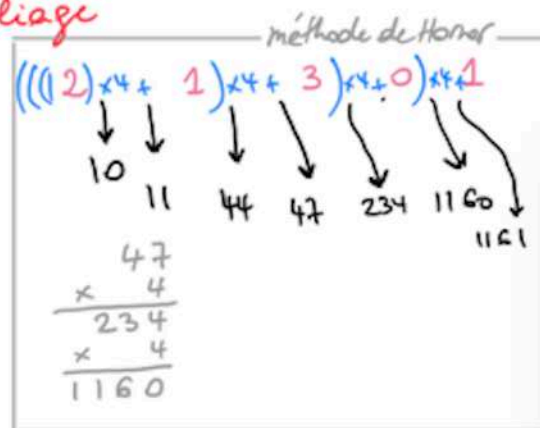 liage
méthode de Horner
(((2)×4+ 1)×4+ 3)×4+0)×4+1
10
11 44 47 234 1160
1161
47
× 4
234
× 4
1160